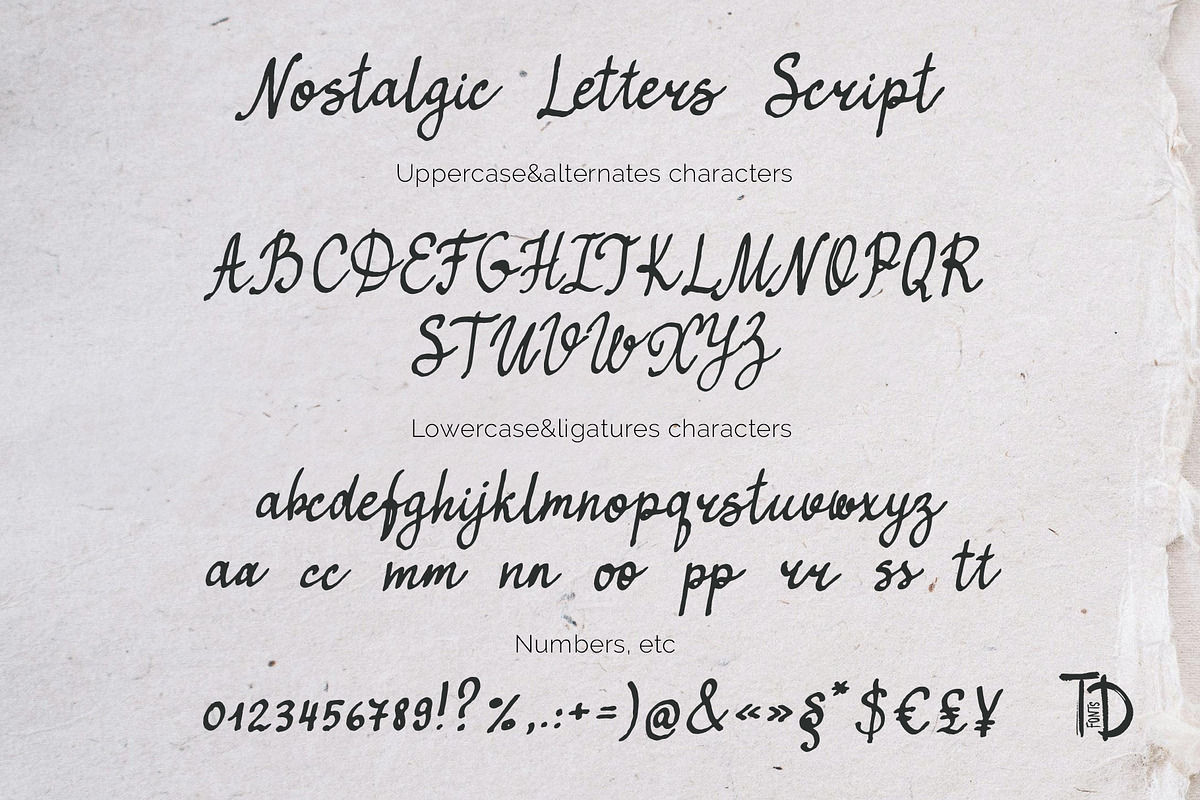 Nostalgic Letters Script
Uppercase&alternates characters
ABCDEFGHIJKLMNOPQR
STUVWXYZ
Lowercase&ligatures characters
abcdefghijklmnopqrstuvwxyz
aa cc mm nn oo pp rr ss tt
Numbers, etc
0123456789!?%,.:+=)@&«»§*$€£¥
TD
FONTS